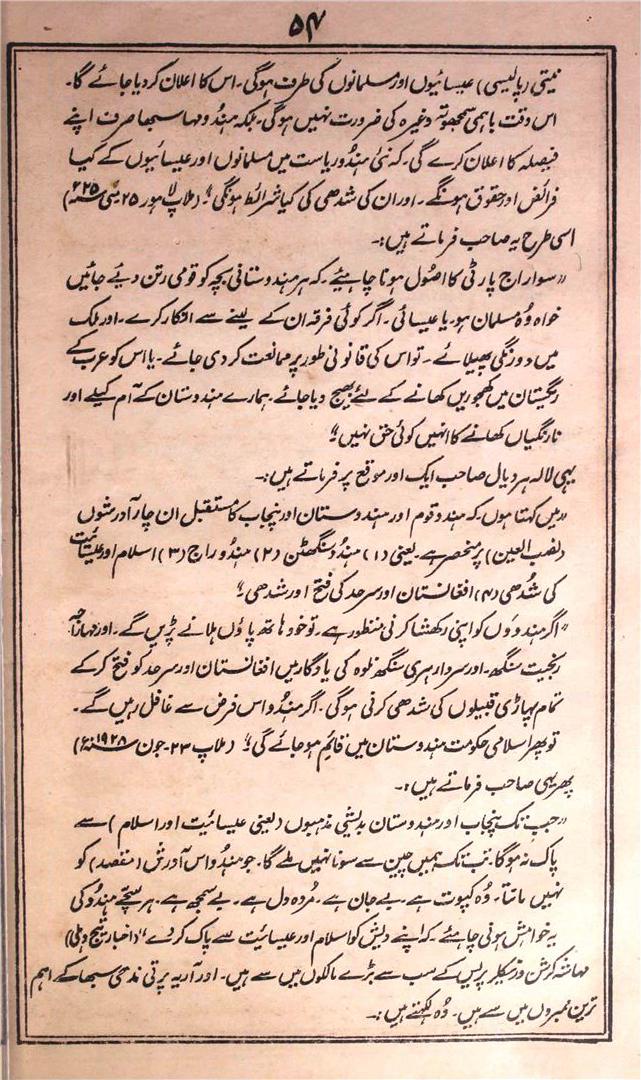 ۵۴
نیتی (پالیسی) عیسائیوں اور مسلمانوں کی طرف ہوگی۔ اس کا اعلان کر دیا جائے گا۔
اس وقت باہمی سمجھوتہ وغیرہ کی ضرورت نہیں ہوگی۔ بلکہ ہندو مہاسبھا صرف اپنے
فیصلہ کا اعلان کرے گی۔ کہ نئی ہندو ریاست میں مسلمانوں اور عیسائیوں کے کیا
فرائض اور حقوق ہونگے۔ اور ان کی شدھی کی کیا شرائط ہونگی" (ملاپ لاہور ۲۵ مئی
اسی طرح یہ صاحب فرماتے ہیں:۔
"سوراج پارٹی کا اصول ہونا چاہیئے۔ کہ ہر ہندوستانی بچہ کو قومی رتن دیئے جائیں
خواہ وہ مسلمان ہو۔ یا عیسائی۔ اگر کوئی فرقہ ان کے لینے سے انکار کرے۔ اور ملک
میں دورنگی پھیلائے۔ تو اس کی قانونی طور پر ممانعت کر دی جائے۔ یا اس کو عرب کے
ریگستان میں کھجوریں کھانے کے لئے بھیج دیا جائے۔ ہمارے ہندوستان کے آم کیلے اور
نارنگیاں کھانے کا انہیں کوئی حق نہیں"
یہی لالہ ہردیال صاحب ایک اور موقع پر فرماتے ہیں:۔
"میں کہتا ہوں۔ کہ ہندو قوم اور ہندوستان اور پنجاب کا مستقبل ان چار آدرشوں
(نصب العین) پر منحصر ہے۔ یعنی (۱) ہندو سنگھٹن (۲) ہندو راج (۳) اسلام اور عیسائیت
کی شدھی (۴) افغانستان اور سرحد کی فتح اور شدھی"
"اگر ہندوؤں کو اپنی رکھشا کرنی منظور ہے۔ تو خود ہاتھ پاؤں ہلانے پڑیں گے۔ اور مہاراجہ
رنجیت سنگھ۔ اور سردار ہری سنگھ نلوہ کی یادگار میں افغانستان اور سرحد کو فتح کر کے
تمام پہاڑی قبیلوں کی شدھی کرنی ہوگی۔ اگر ہندو اس فرض سے غافل رہیں گے۔
تو پھر اسلامی حکومت ہندوستان میں قائم ہو جائے گی" (ملاپ ۲۳۔ جون ۱۹۲۸ء)
پھر یہی صاحب فرماتے ہیں:۔
"جب تک پنجاب اور ہندوستان بدیشی مذہبوں (یعنی عیسائیت اور اسلام) سے
پاک نہ ہوگا۔ تب تک ہمیں چین سے سونا نہیں ملے گا۔ جو ہندو اس آدرش (مقصد) کو
نہیں مانتا۔ وہ کپوت ہے۔ بے جان ہے۔ مردہ دل ہے۔ بے سمجھ ہے۔ ہر سچے ہندو کی
یہ خواہش ہونی چاہیئے۔ کہ اپنے دیش کو اسلام اور عیسائیت سے پاک کر دے" (اخبار تیج دہلی)
مہاشہ کرشن ورنیکلر پریس کے سب سے بڑے مالکوں میں سے ہیں۔ اور آریہ پرتی ندھی سبھا کے اہم
ترین ممبروں میں سے ہیں۔ وہ لکھتے ہیں:۔